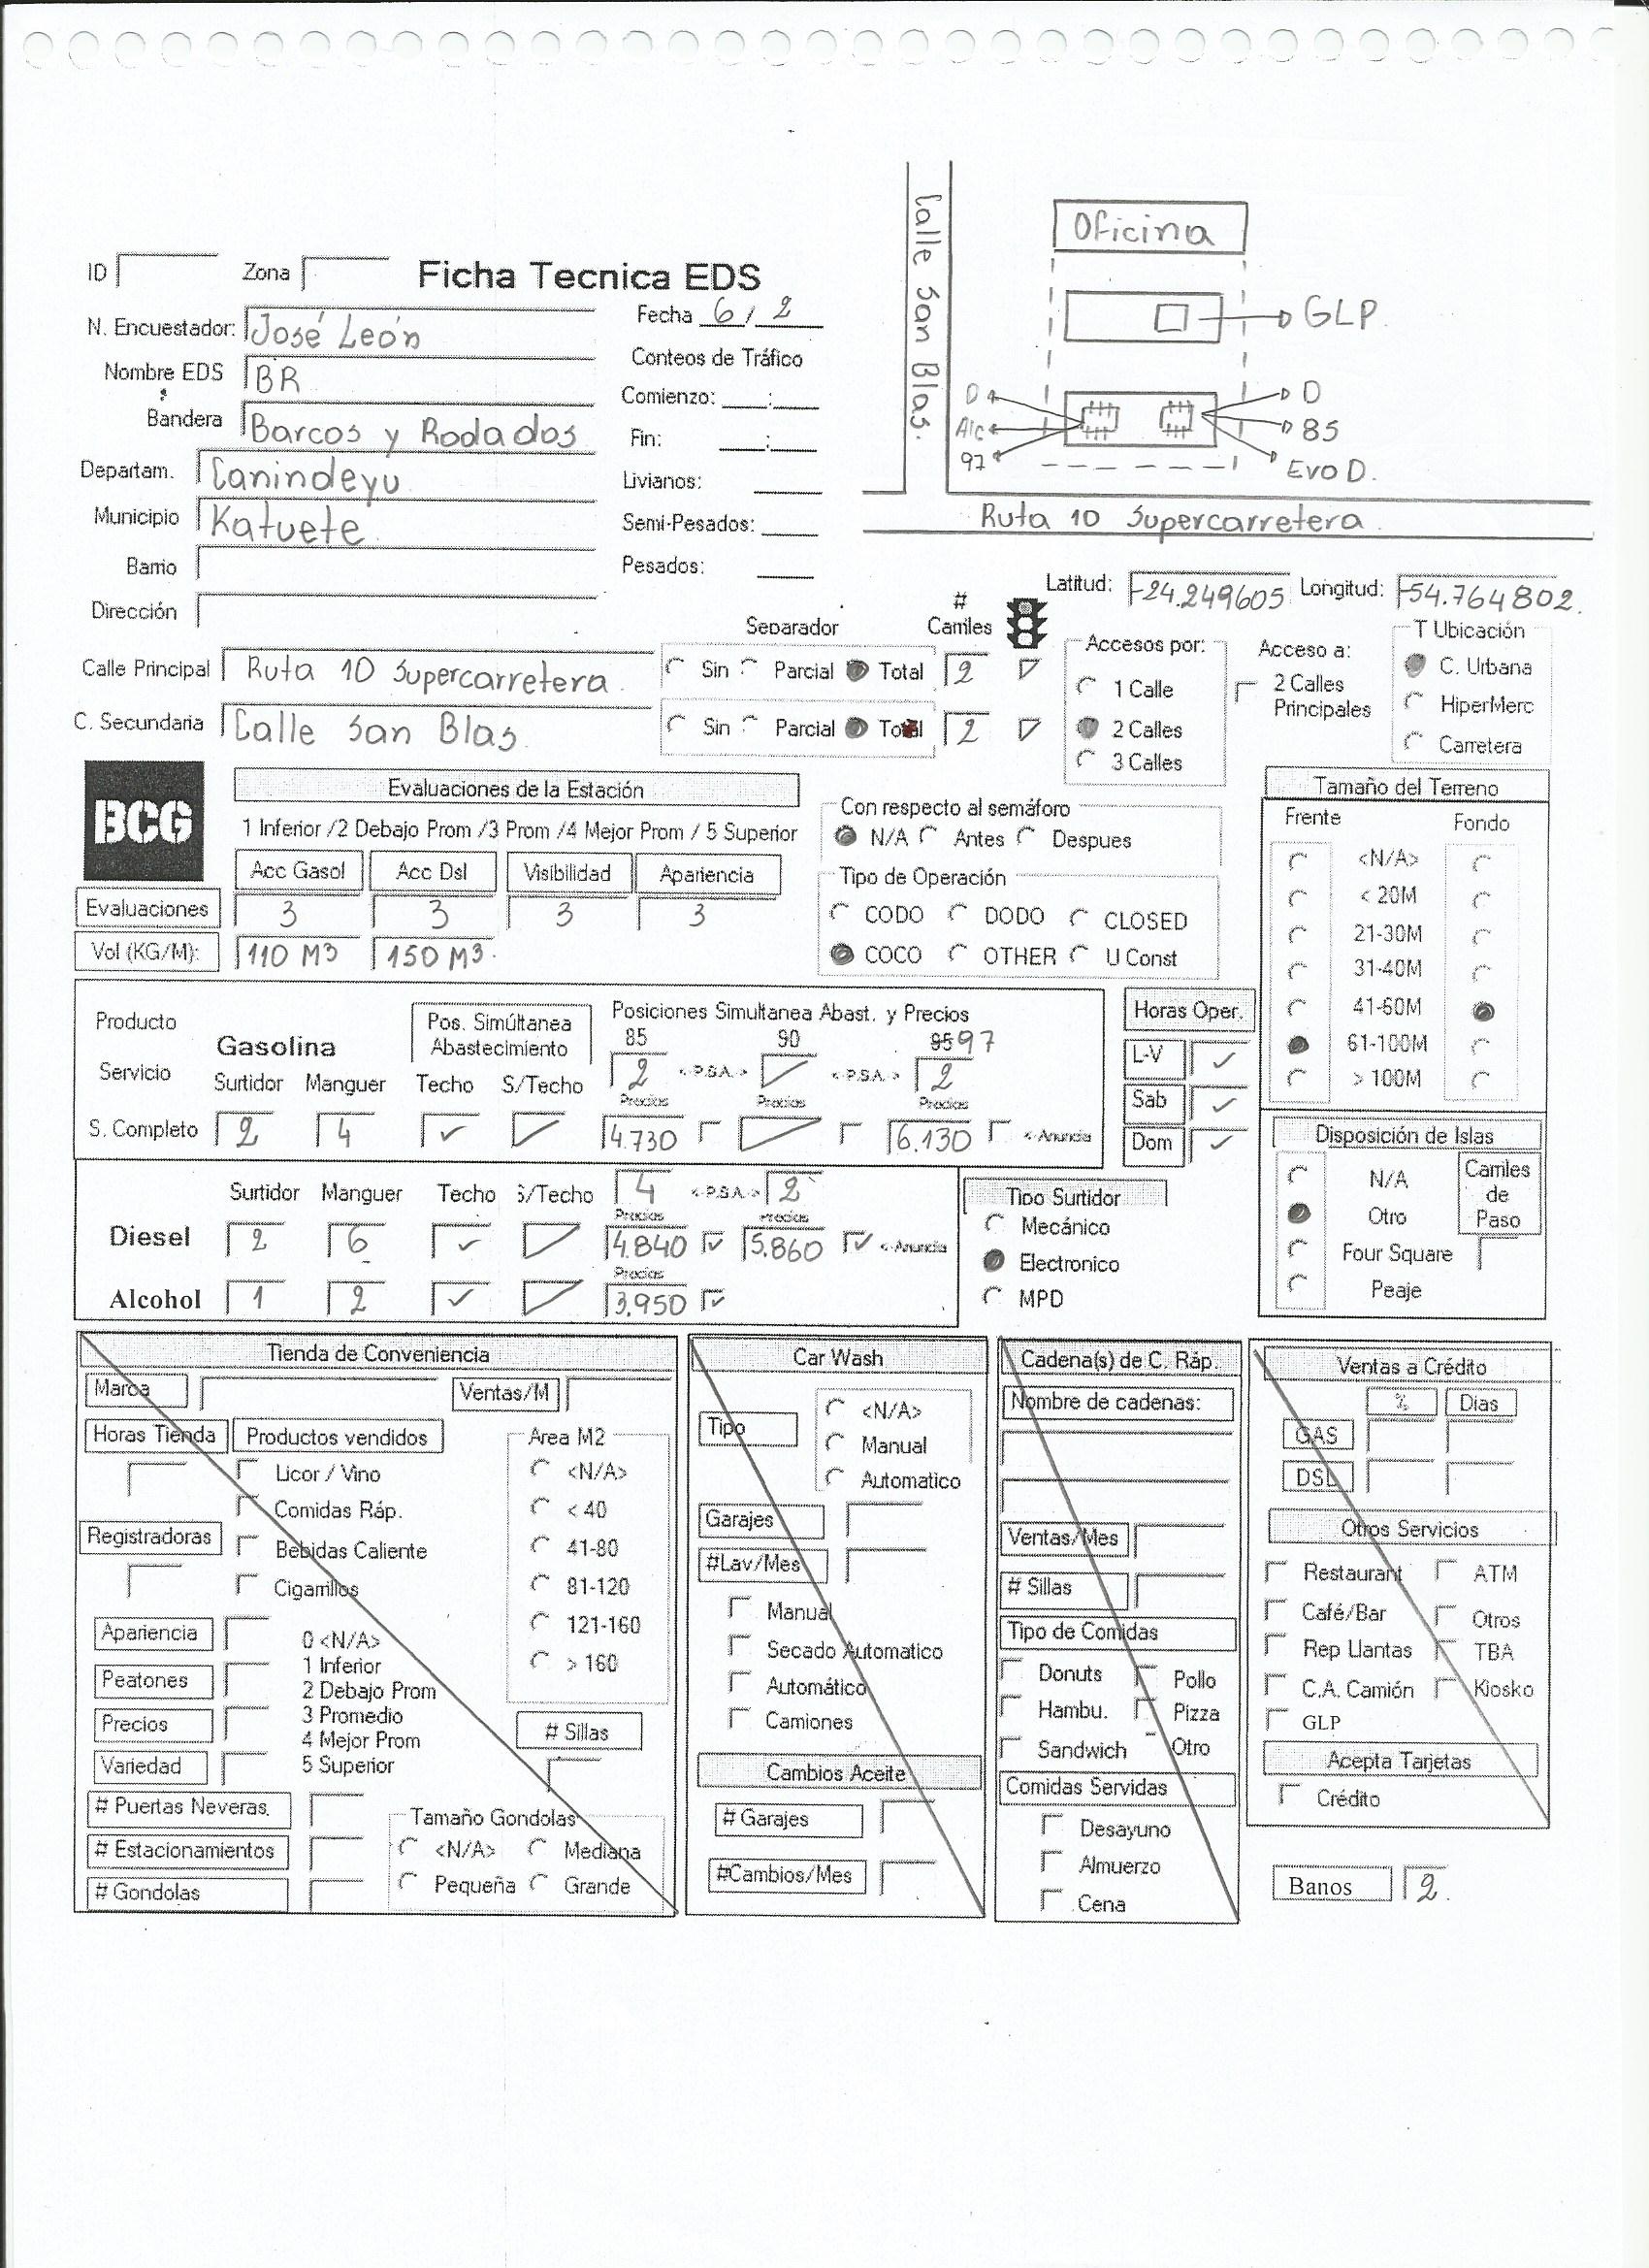 Calle San Blas.
Oficina
GLP.
D
Alc
97
D
85
Evo D.
Ruta 10 Supercarretera.
ID Zona Ficha Tecnica EDS
N. Encuestador: José León Fecha 6 / 2
Conteos de Tráfico
Nombre EDS BR
Comienzo: :
Bandera Barcos y Rodados
Fin: :
Departam. Canindeyu
Livianos:
Municipio Katuete
Semi-Pesados:
Barrio Pesados:
Dirección
Latitud: -24.249605 Longitud: -54.764802.
Separador # Carriles
Calle Principal Ruta 10 Supercarretera. Sin Parcial Total 2
C. Secundaria Calle San Blas. Sin Parcial Total 2
Accesos por:
1 Calle
2 Calles
3 Calles
Acceso a:
2 Calles Principales
T Ubicación
C. Urbana
HiperMerc
Carretera
BCG
Evaluaciones de la Estación
1 Inferior /2 Debajo Prom /3 Prom /4 Mejor Prom / 5 Superior
Acc Gasol Acc Dsl Visibilidad Apariencia
Evaluaciones 3 3 3 3
Vol (KG/M): 110 M3 150 M3.
Con respecto al semáforo
N/A Antes Despues
Tipo de Operación
CODO DODO CLOSED
COCO OTHER U Const
Tamaño del Terreno
Frente Fondo
<N/A>
< 20M
21-30M
31-40M
41-60M
61-100M
> 100M
Producto
Servicio
Gasolina
Pos. Simúltanea Abastecimiento
Posiciones Simultanea Abast. y Precios
85 90 95 97
2 <-P.S.A.-> <-P.S.A.-> 2
Surtidor Manguer Techo S/Techo Precios Precios Precios
S. Completo 2 4 ✓ 4.730 6.130 <-Anuncia
Horas Oper.
L-V ✓
Sab ✓
Dom ✓
Surtidor Manguer Techo S/Techo 4 <-P.S.A.-> 2
Precios Precios
Diesel 2 6 ✓ 4.840 ✓ 5.860 ✓ <-Anuncia
Precios
Alcohol 1 2 ✓ 3.950 ✓
Tipo Surtidor
Mecánico
Electronico
MPD
Disposición de Islas
N/A
Otro
Four Square
Peaje
Carriles de Paso
Tienda de Conveniencia
Marca Ventas/M
Horas Tienda Productos vendidos
Licor / Vino
Comidas Ráp.
Registradoras
Bebidas Caliente
Cigarrillos
Area M2
<N/A>
< 40
41-80
81-120
121-160
> 160
Apariencia
Peatones
Precios
Variedad
0 <N/A>
1 Inferior
2 Debajo Prom
3 Promedio
4 Mejor Prom
5 Superior
# Sillas
# Puertas Neveras
# Estacionamientos
# Gondolas
Tamaño Gondolas
<N/A> Mediana
Pequeña Grande
Car Wash
Tipo
<N/A>
Manual
Automatico
Garajes
#Lav/Mes
Manual
Secado Automatico
Automático
Camiones
Cambios Aceite
# Garajes
#Cambios/Mes
Cadena(s) de C. Ráp.
Nombre de cadenas:
Ventas/Mes
# Sillas
Tipo de Comidas
Donuts Pollo
Hambu. Pizza
Sandwich Otro
Comidas Servidas
Desayuno
Almuerzo
Cena
Ventas a Crédito
% Dias
GAS
DSL
Otros Servicios
Restaurant ATM
Café/Bar Otros
Rep Llantas TBA
C.A. Camión Kiosko
GLP
Acepta Tarjetas
Crédito
Banos 2.